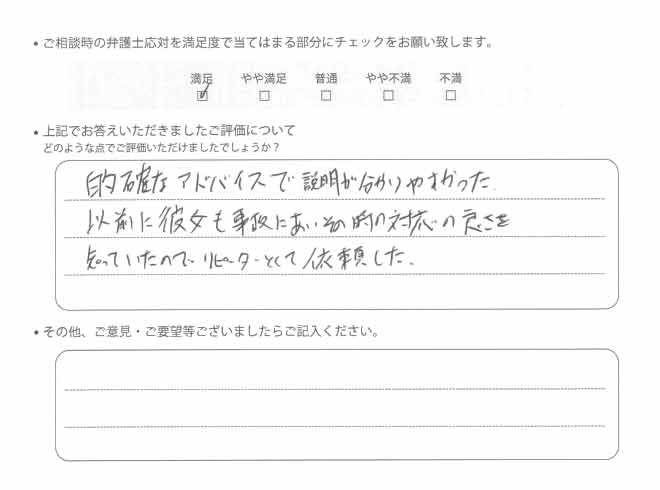 • ご相談時の弁護士応対を満足度で当てはまる部分にチェックをお願い致します。
満足 やや満足 普通 やや不満 不満
☑ □ □ □ □
• 上記でお答えいただきましたご評価について
どのような点でご評価いただけましたでしょうか？
的確なアドバイスで説明が分かりやすかった.
以前に彼女も事故にあいその時の対応の良さを
知っていたのでリピーターとして依頼した.
• その他、ご意見・ご要望等ございましたらご記入ください。